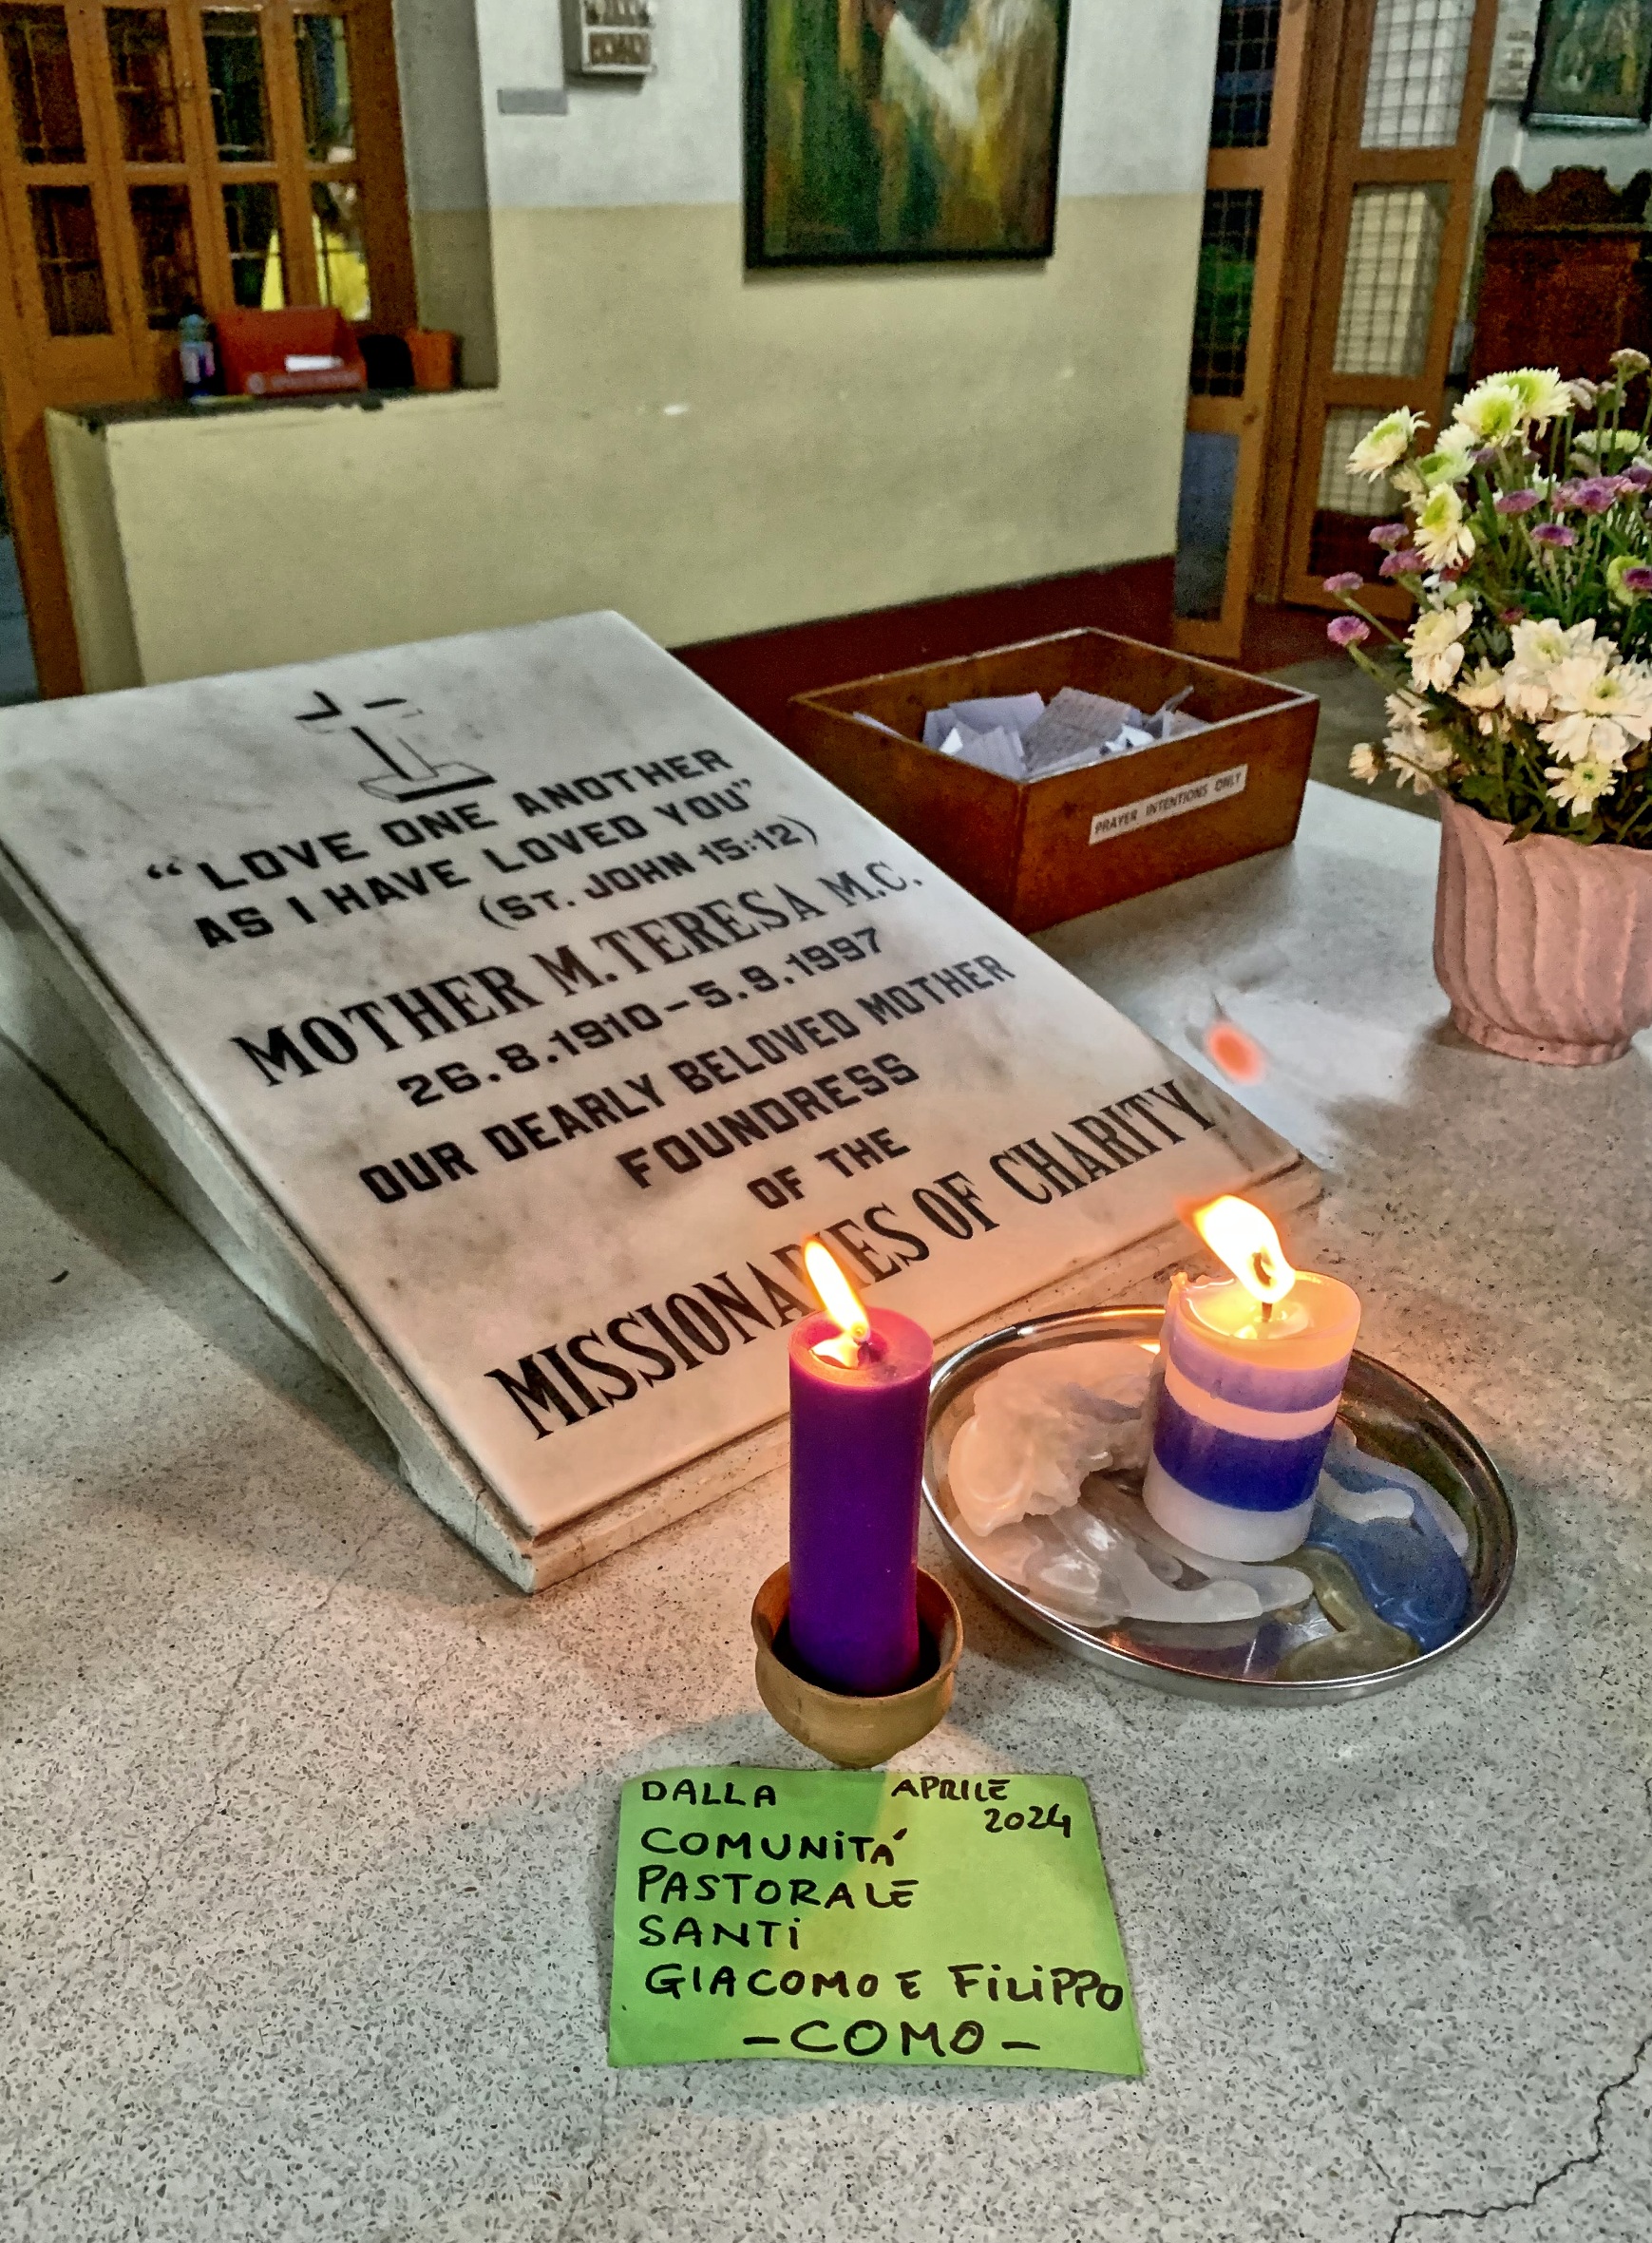 “LOVE ONE ANOTHER
AS I HAVE LOVED YOU”
(ST. JOHN 15:12)
MOTHER M. TERESA M.C.
26.8.1910–5.9.1997
OUR DEARLY BELOVED MOTHER
FOUNDRESS
OF THE
MISSIONARIES OF CHARITY
PRAYER INTENTIONS ONLY
DALLA APRILE
2024
COMUNITÁ
PASTORALE
SANTI
GIACOMO E FILIPPO
–COMO–